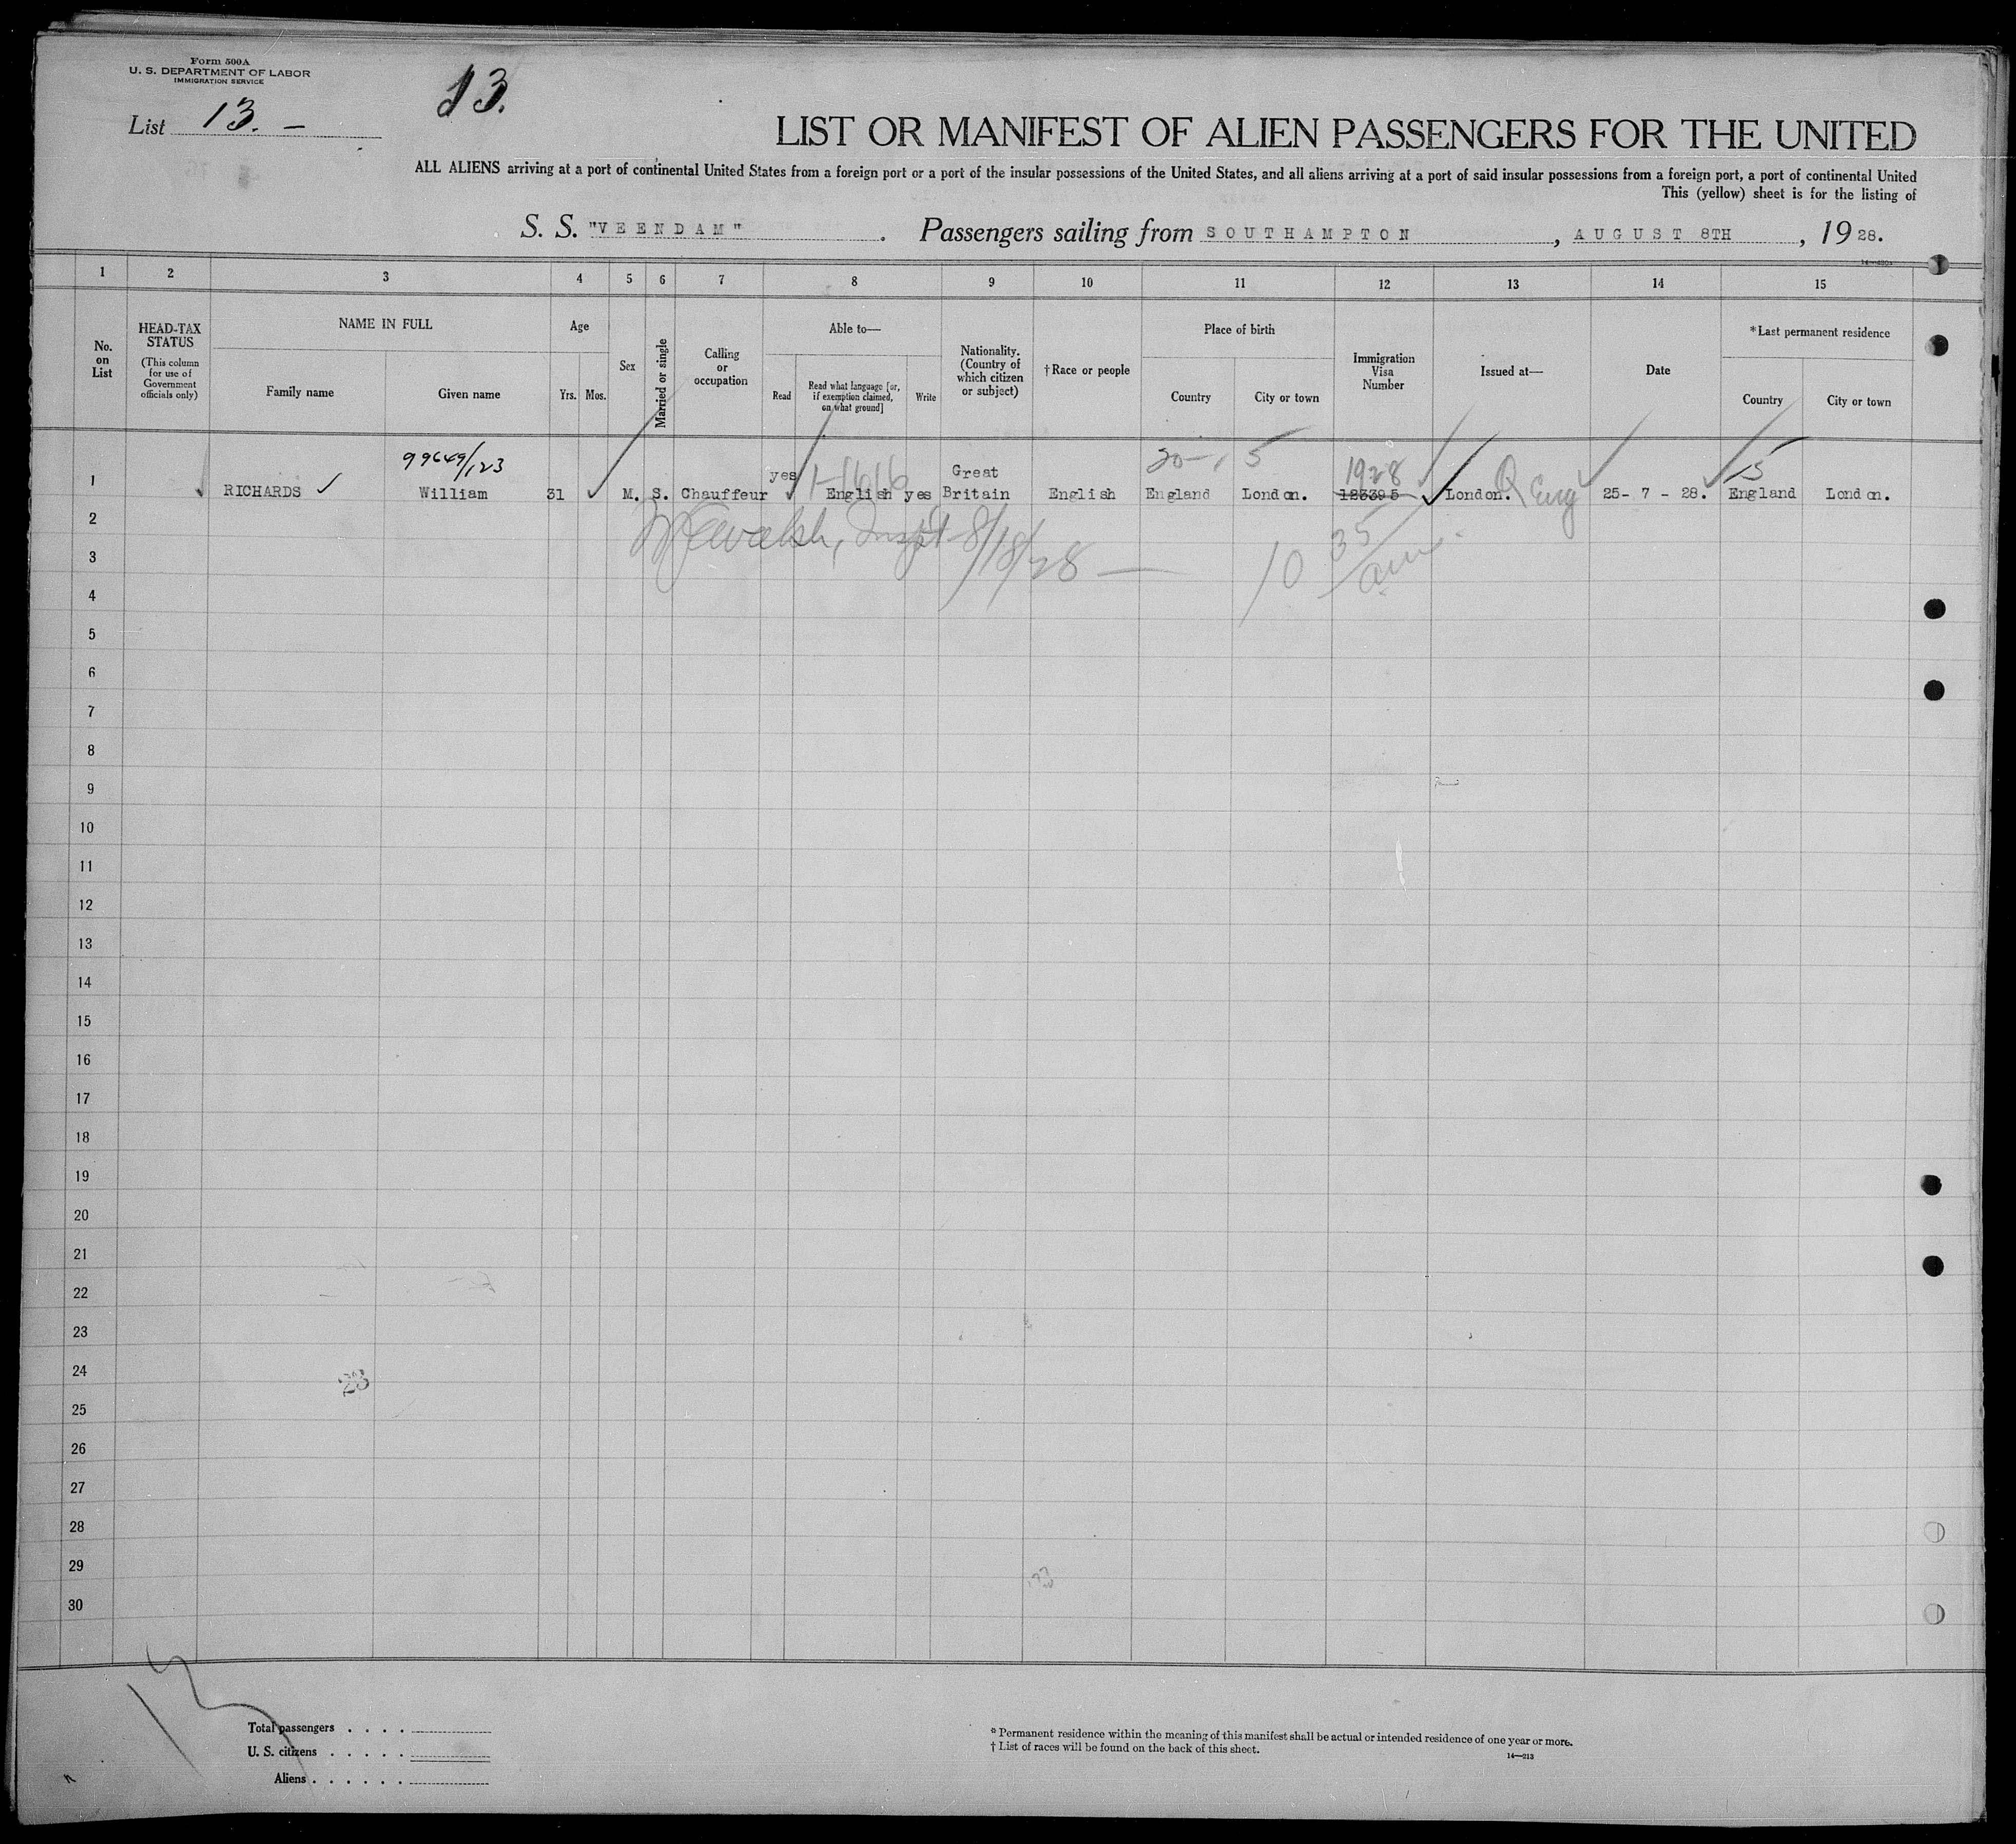 Form 500A
U. S. DEPARTMENT OF LABOR
IMMIGRATION SERVICE
List 13. –
13.
LIST OR MANIFEST OF ALIEN PASSENGERS FOR THE UNITED
ALL ALIENS arriving at a port of continental United States from a foreign port or a port of the insular possessions of the United States, and all aliens arriving at a port of said insular possessions from a foreign port, a port of continental United
This (yellow) sheet is for the listing of
S. S. "VEENDAM". Passengers sailing from SOUTHAMPTON, AUGUST 8TH, 1928.
1 2 3 4 5 6 7 8 9 10 11 12 13 14 15
No. on List
HEAD-TAX STATUS
(This column for use of Government officials only)
NAME IN FULL
Family name
Given name
Age
Yrs. Mos.
Sex
Married or single
Calling or occupation
Able to—
Read
Read what language [or, if exemption claimed, on what ground]
Write
Nationality. (Country of which citizen or subject)
†Race or people
Place of birth
Country
City or town
Immigration Visa Number
Issued at—
Date
*Last permanent residence
Country
City or town
99649/123
20- 5
1928
15
yes Great
1 RICHARDS William 31 M. S. Chauffeur English yes Britain English England London. 123395 London. Q Eng 25- 7 - 28. England London.
Walsh, Inspt 8/18/28 — 10 35/am.
2
3
4
5
6
7
8
9
10
11
12
13
14
15
16
17
18
19
20
21
22
23
24
23
25
26
27
28
29
30
13
Total passengers . . . .
U. S. citizens . . . . .
Aliens . . . . . .
* Permanent residence within the meaning of this manifest shall be actual or intended residence of one year or more.
† List of races will be found on the back of this sheet.
14—213